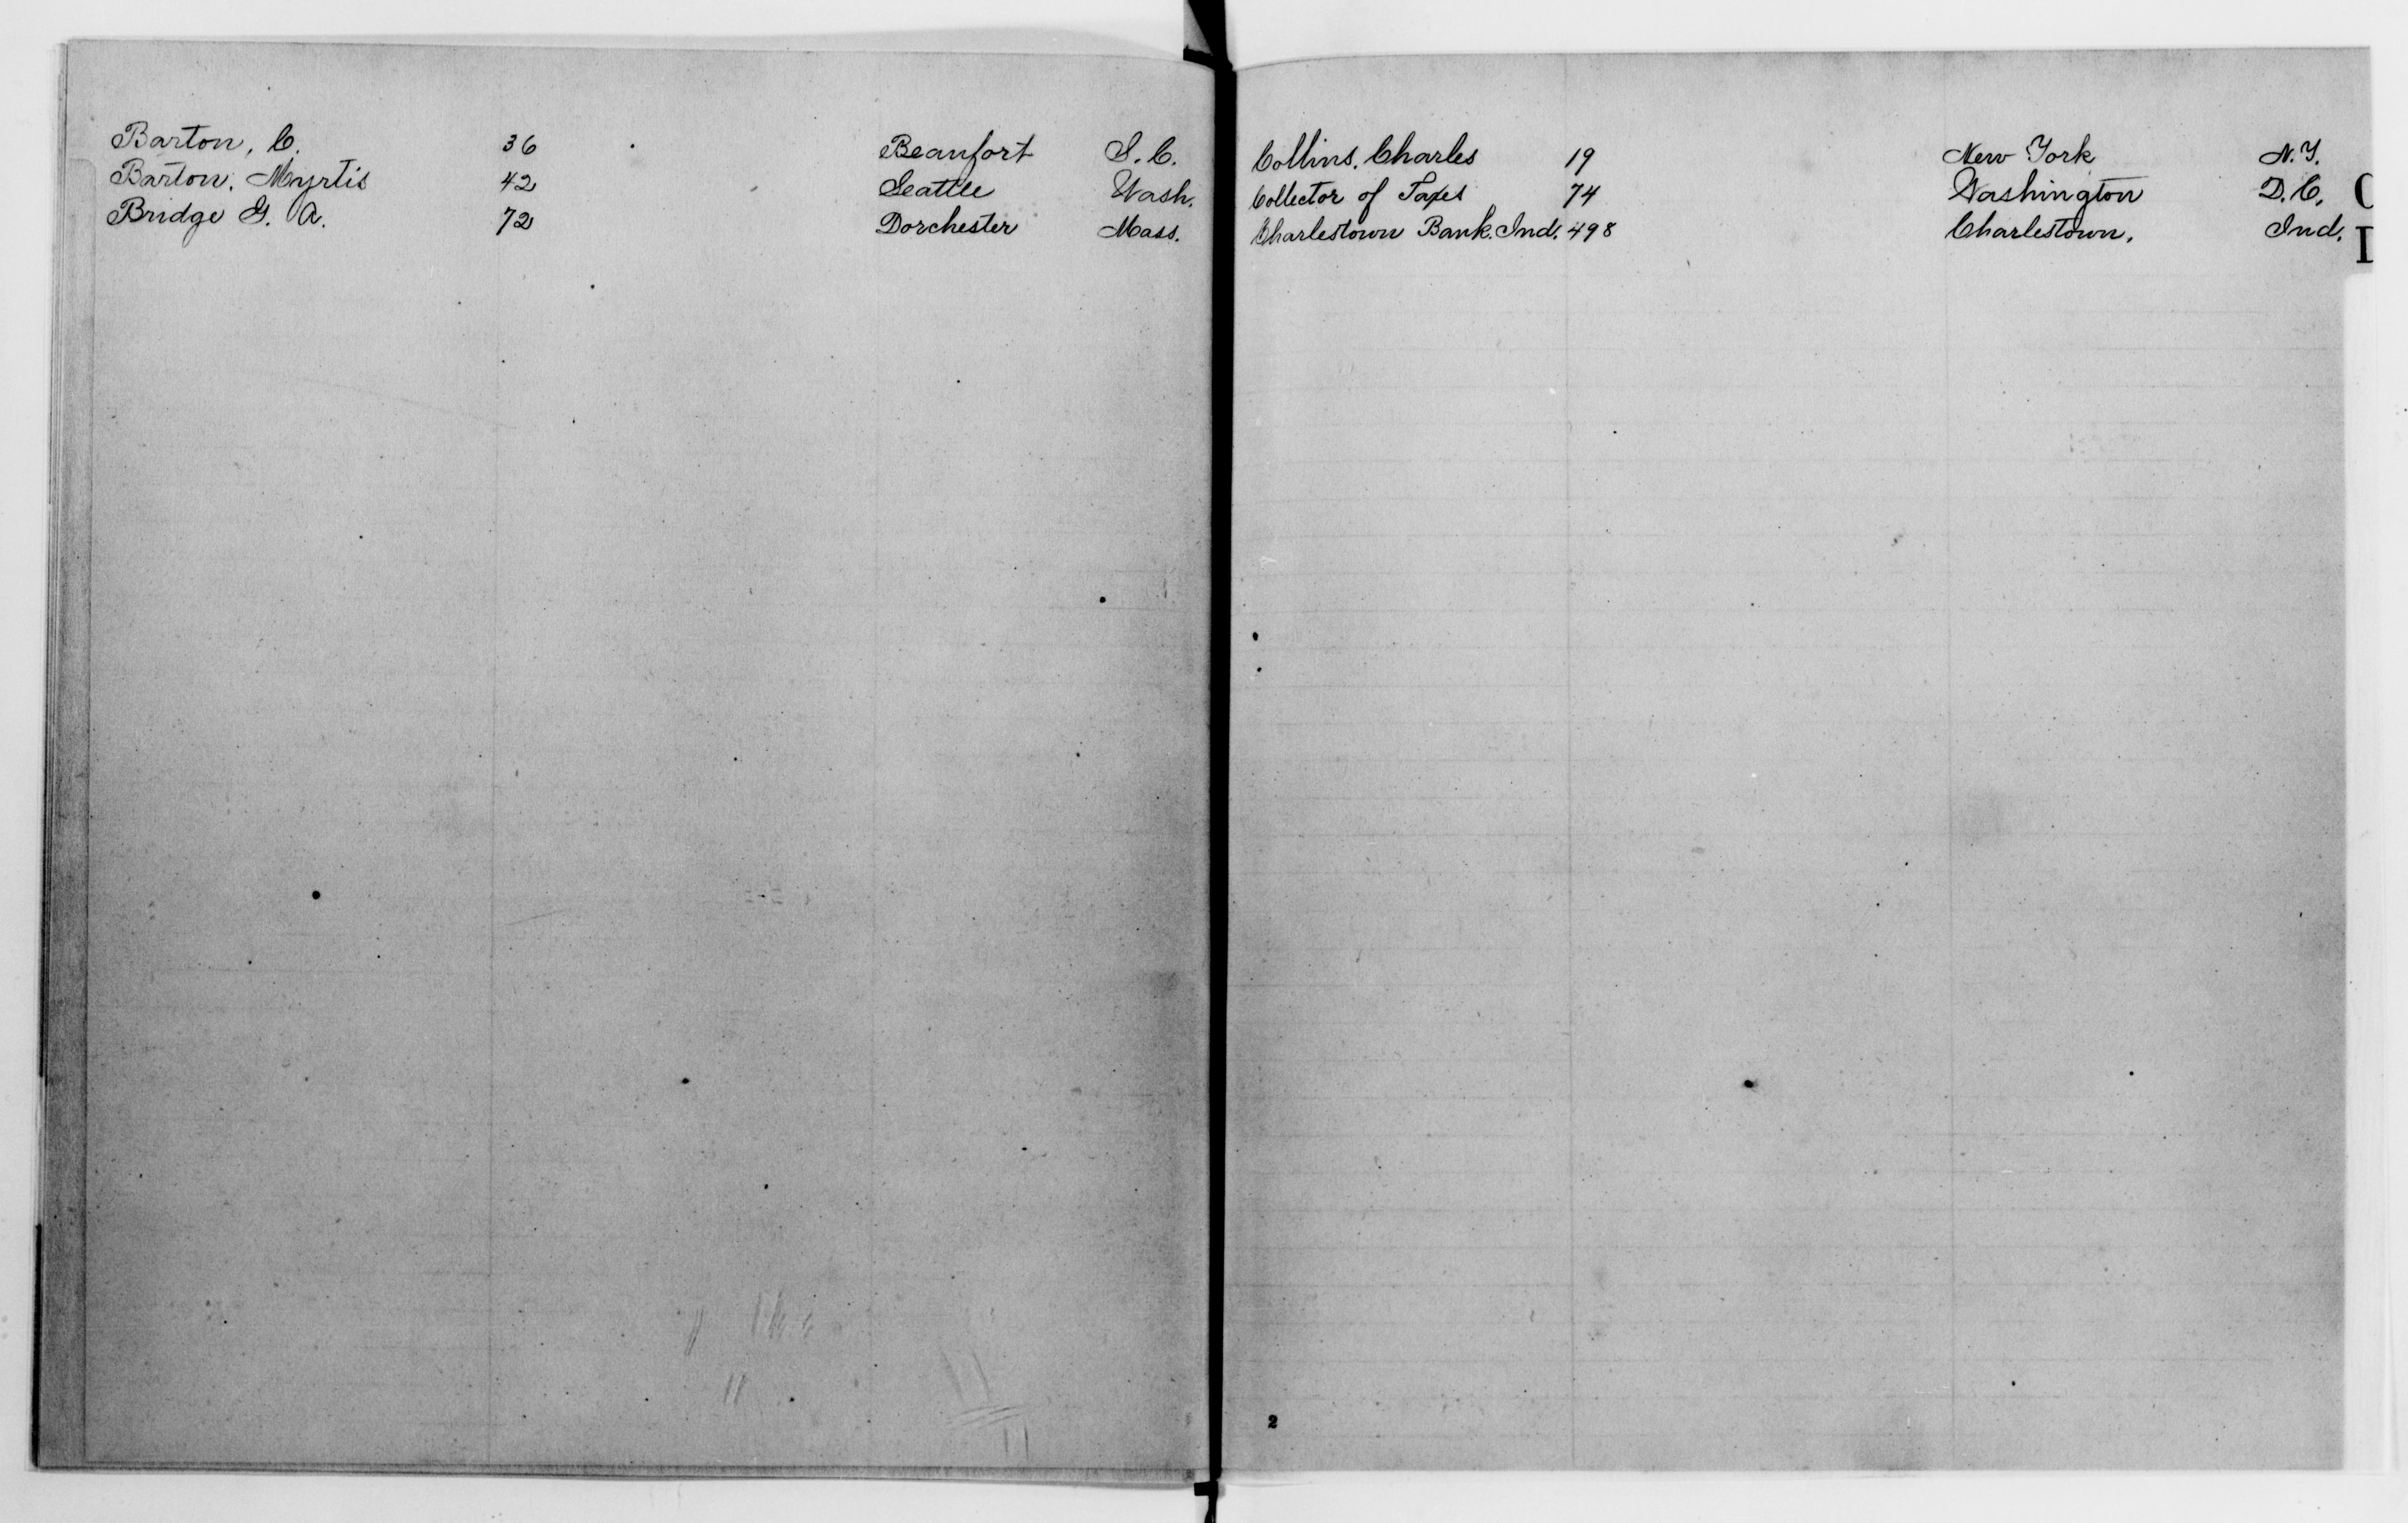 Barton, C. 36 Beaufort S.C.
Barton, Myrtis 42 Seattle Wash.
Bridge G. A. 72 Dorchester Mass.
Collins, Charles 19 New York N.Y.
Collector of Taxes 74 Washington D.C.
Charlestown Bank. Ind. 498 Charlestown, Ind.
C
2